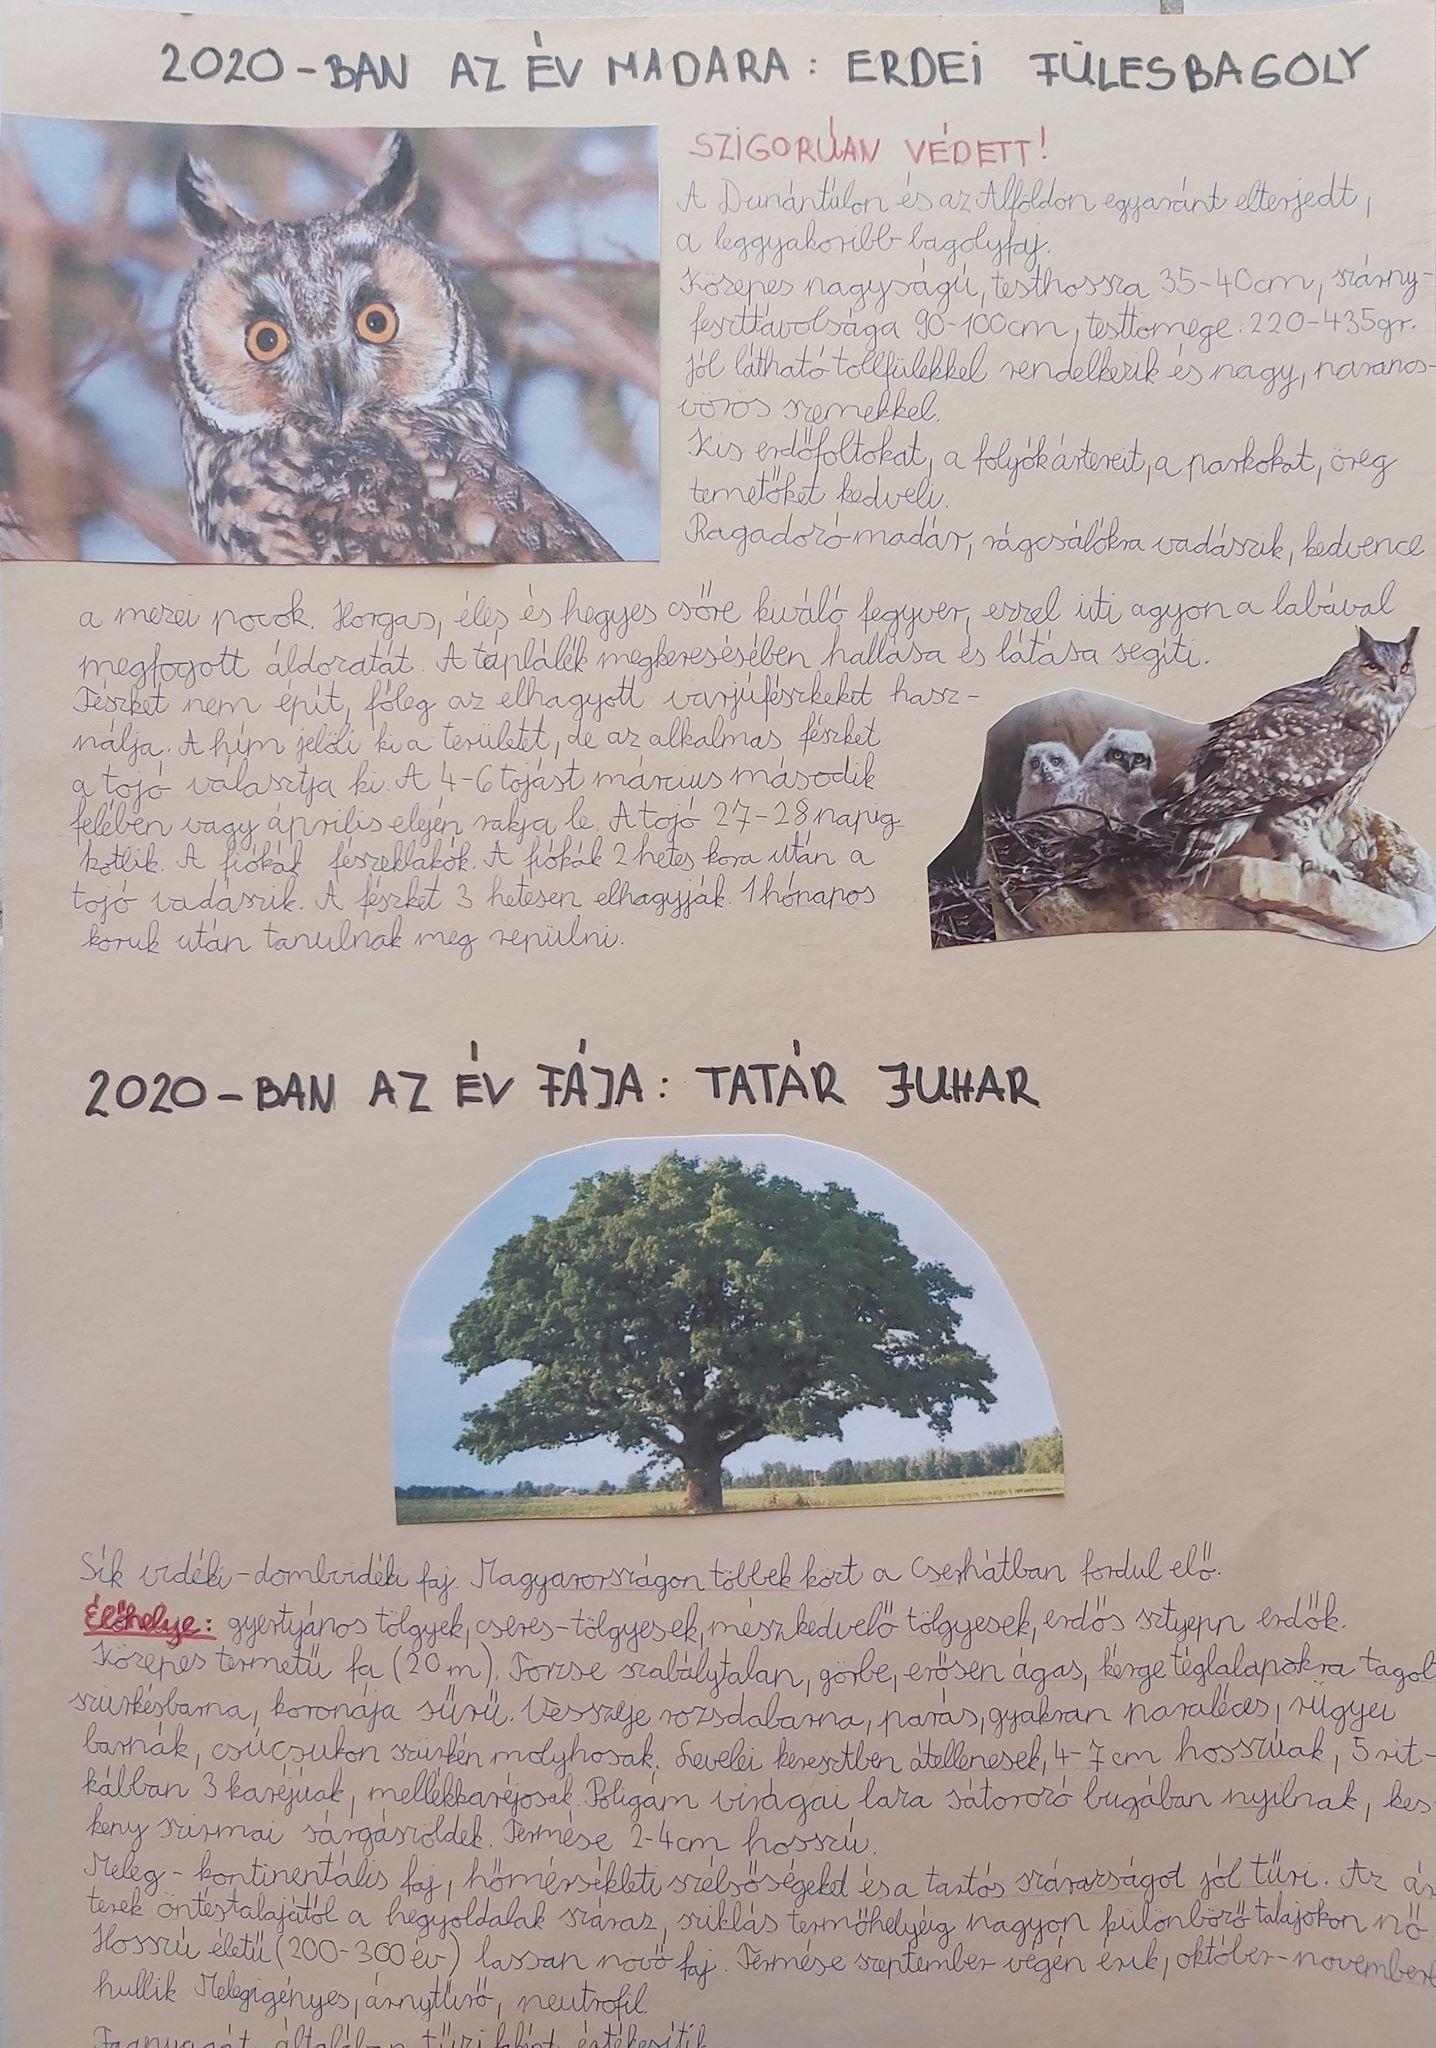 2020-BAN AZ ÉV MADARA: ERDEI FÜLESBAGOLY
SZIGORÚAN VÉDETT!
A Dunántúlon és az Alföldön egyaránt elterjedt,
a leggyakoribb bagolyfaj.
Közepes nagyságú, testhossza 35-40cm, szárny-
feszttávolsága 90-100cm, testtömege: 220-435gr.
Jól látható tollfülekkel rendelkezik és nagy, narancs-
vörös szemekkel.
Kis erdőfoltokat, a folyók ártereit, a parkokat, öreg
temetőket kedveli.
Ragadozó madár, rágcsálókra vadászik, kedvence
a mezei pocok. Horgas, éles és hegyes csőre kiváló fegyver, ezzel üti agyon a lábával
megfogott áldozatát. A táplálék megkeresésében hallása és látása segíti.
Fészket nem épít, főleg az elhagyott varjúfészkeket hasz-
nálja. A hím jelöli ki a területet, de az alkalmas fészket
a tojó választja ki. A 4-6 tojást március második
felében vagy április elején rakja le. A tojó 27-28 napig
kotlik. A fiókák fészeklakók. A fiókák 2 hetes kora után a
tojó vadászik. A fészket 3 hetesen elhagyják. 1 hónapos
koruk után tanulnak meg repülni.
2020-BAN AZ ÉV FÁJA: TATÁR JUHAR
Sík vidéki-dombvidéki faj. Magyarországon többek közt a Cserhátban fordul elő.
Élőhelye: gyertyános tölgyek, cseres-tölgyesek, mészkedvelő tölgyesek, erdős sztyepp erdők.
Közepes termetű fa (20m). Törzse szabálytalan, görbe, erősen ágas, kérge téglalapokra tagol
szürkésbarna, koronája sűrű. Vesszeje rozsdabarna, parás, gyakran paraléces, rügyei
barnák, csúcsukon szürkén molyhosak. Levelei keresztben átellenesek, 4-7cm hosszúak, 5 rit-
kábban 3 karéjúak, mellékkaréjosak. Poligám virágai laza sátorozó bugában nyílnak, kes-
keny szirmai sárgászöldek. Termése 2-4cm hosszú.
Meleg-kontinentális faj, hőmérsékleti szélsőségeket és a tartós szárazságot jól tűri. Az ár
terek öntéstalajától a hegyoldalak száraz, sziklás termőhelyéig nagyon különböző talajokon nő
Hosszú életű (200-300 év) lassan növő faj. Termése szeptember végén érik, október-november
hullik Melegigényes, árnytűrő, neutrofil.
Faanyagát általában tűzifaként értékesítik